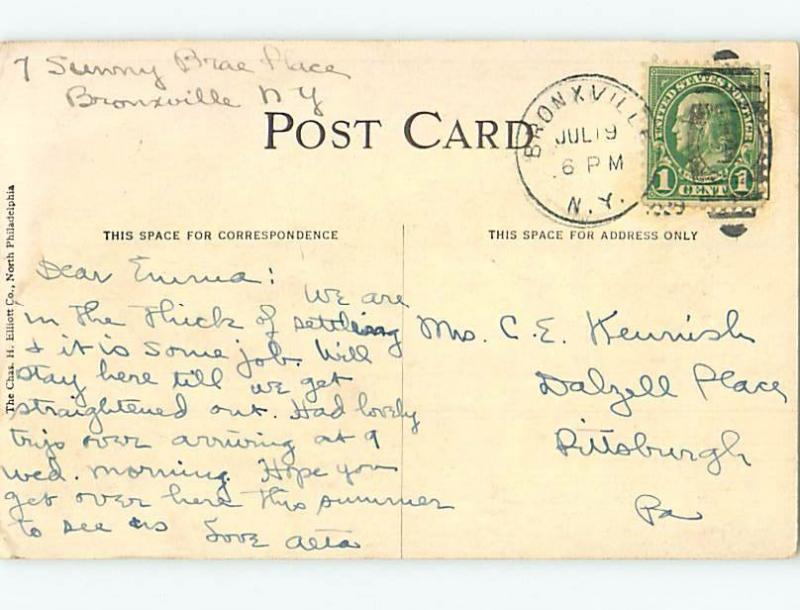 7 Sunny Brae Place
Bronxville N Y
POST CARD
BRONXVILLE
JUL 19
6 PM
N.Y.
UNITED STATES POSTAGE
1 CENT 1
THIS SPACE FOR CORRESPONDENCE
THIS SPACE FOR ADDRESS ONLY
The Chas. H. Elliott Co., North Philadelphia
Dear Emma:
We are
in the thick of settling
& it is some job. Will
stay here till we get
straightened out. Had lovely
trip over arriving at 9
Wed. morning. Hope you
get over here this summer
to see us
Love Alta
Mrs. C. E. Kennish
Dalzell Place
Pittsburgh
Pa